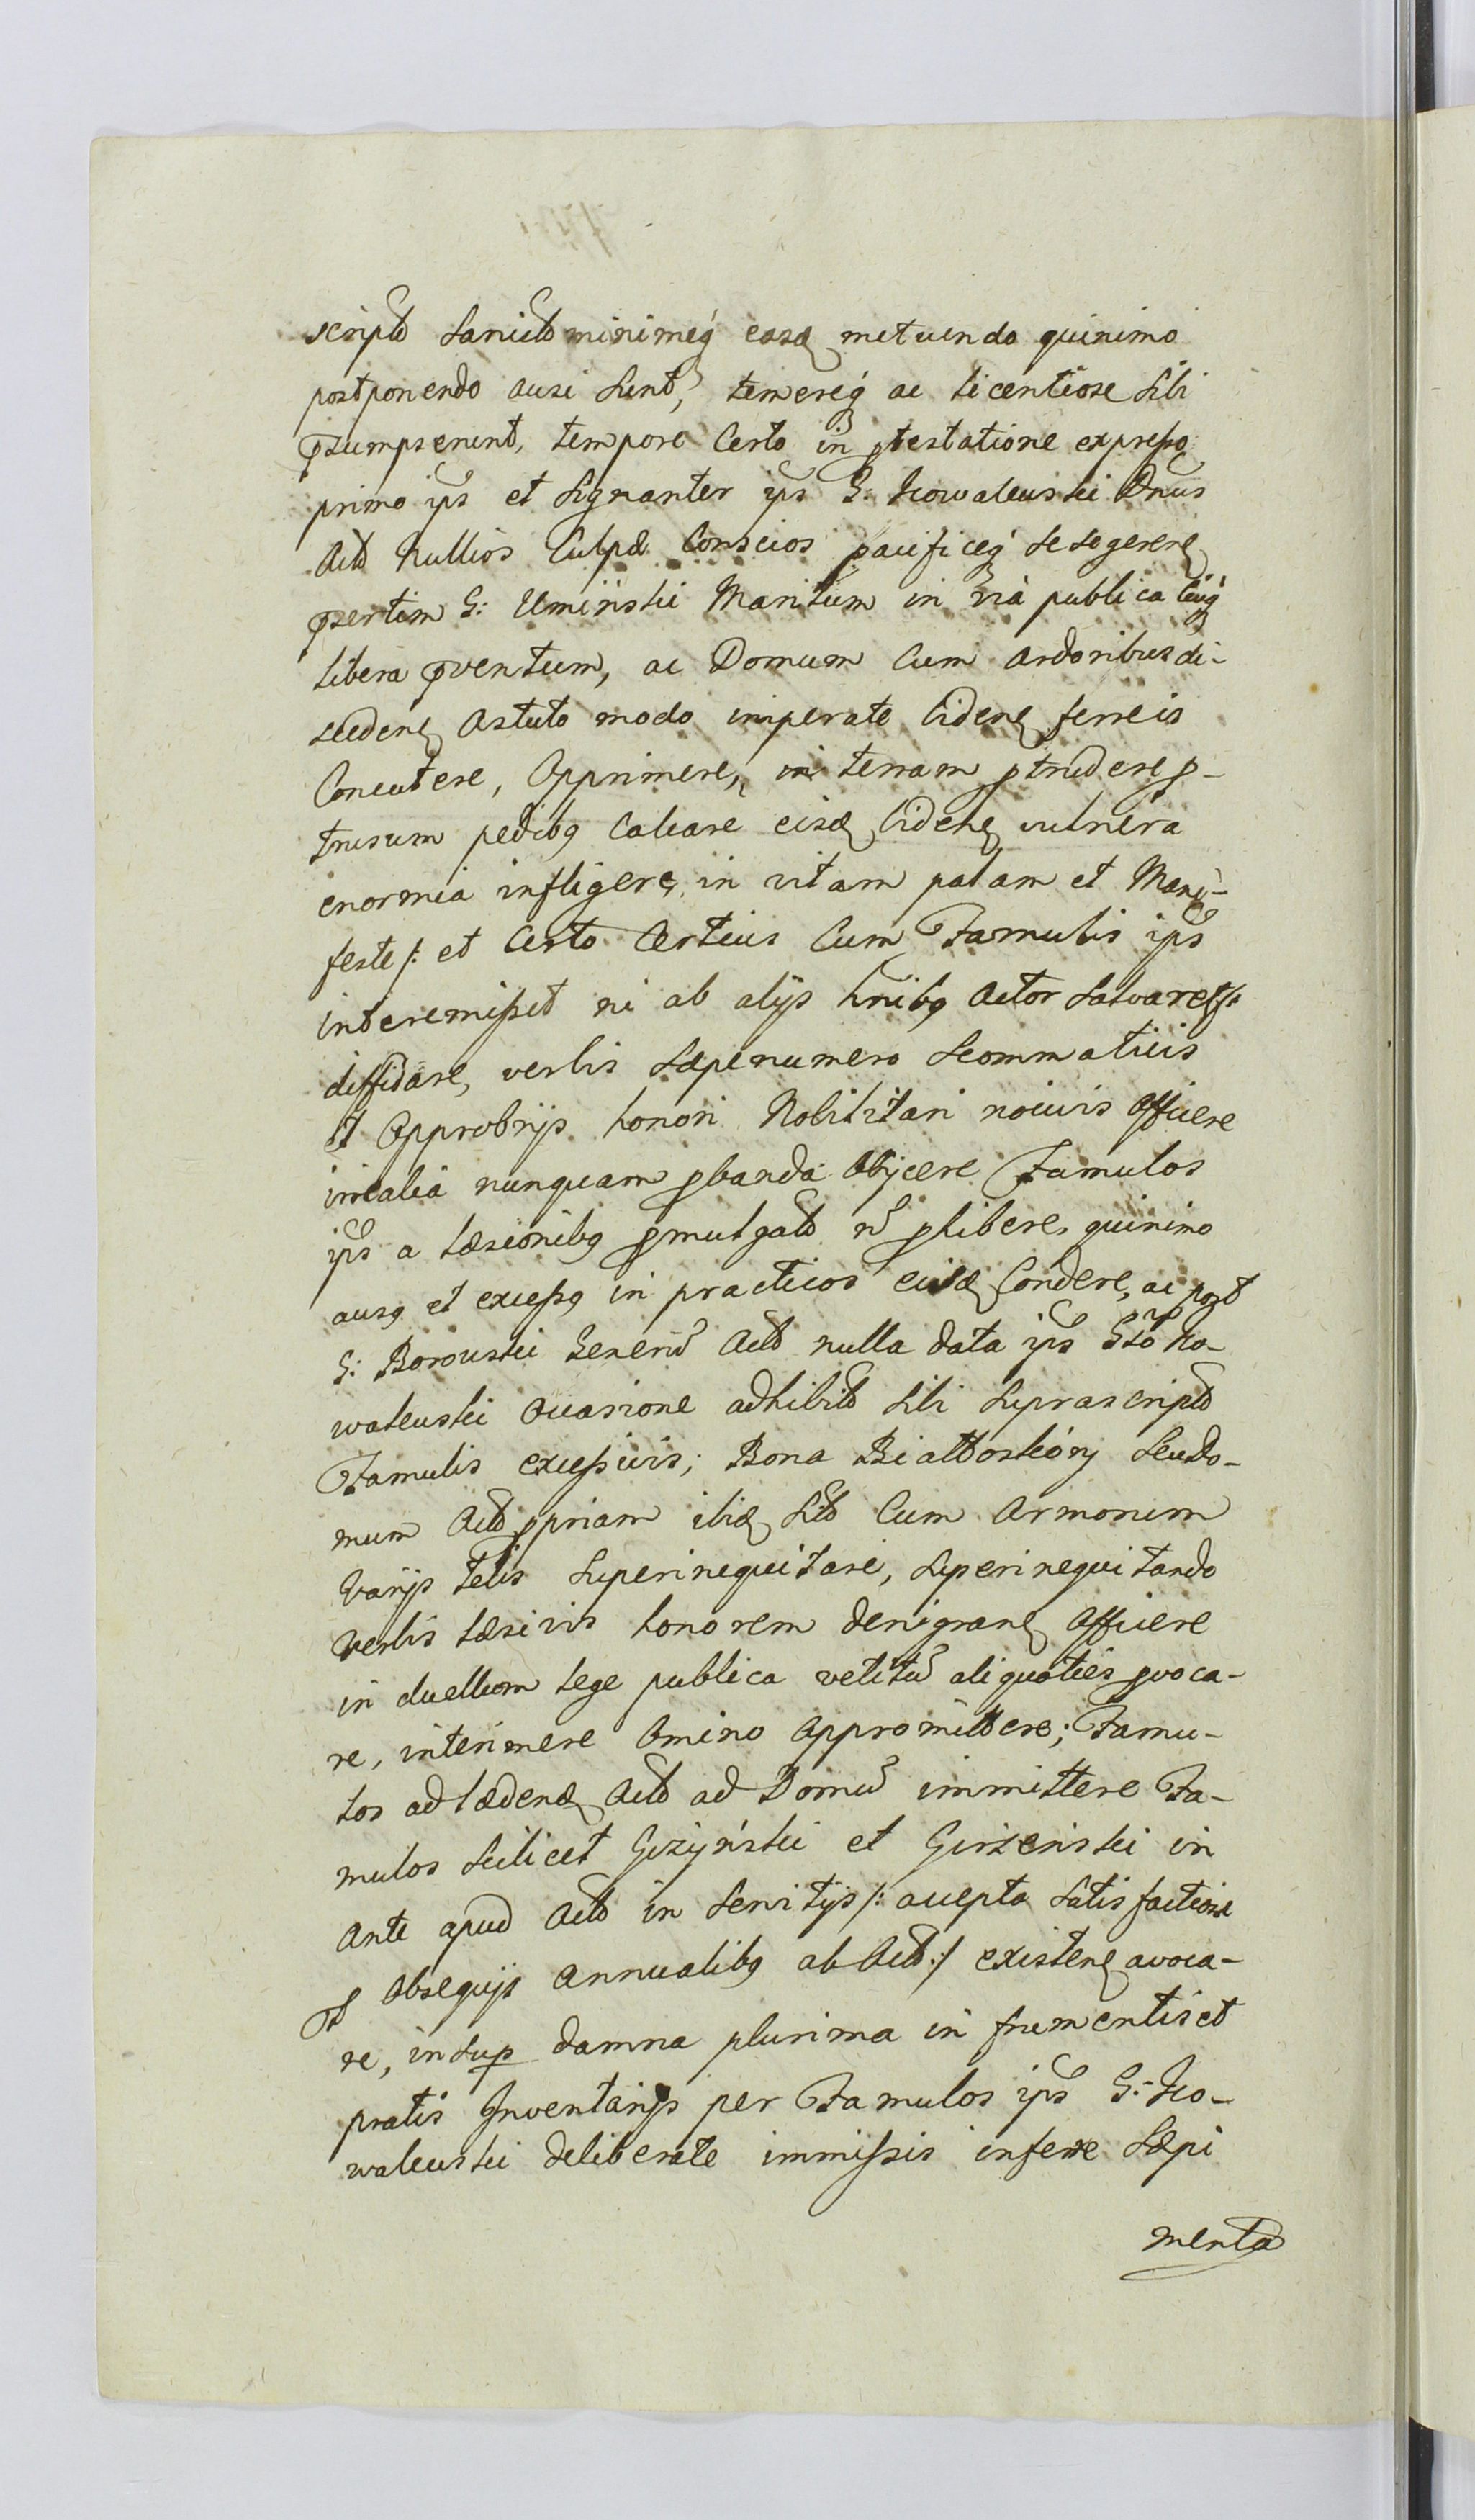 scripto Sancito minimeq́ easd metuendo quinimo
postponendo ausi sunt, temereq́ ac licentiose sibi
psumpserunt, tempore Certo in ptestatione expresso
primo ips et Signanter ips G: Kowalewski Dnus
Acto Nullios Culpæ Conscios pacificeq́ se se gerere
psertim G: Umiński Maritum in via publica Cuiq́
libera pventum, ac Domum Cum Ardoribus di-
scedene Astuto modo imperate Cidene ferreis
Concutere, Opprimere, in terram ptrudere p-
trusum pedibq Calcare eisd Cidene vulnera
enormia infligere, in vitam palam et Mani-
feste /: et Certo Certius Cum Famulis ips
interemisset ni ab alijs hnibq Actor Salvaret /:
diffidare, verbis Sæpenumero Scommaticis
et Opprobrijs honori Nobilitari nocivis Afficere
irrealia nunquam pbanda Objicere Famulos
ips a læsionibq pmulgato n̄ phibere, quinimo
ausq et excessq in practicos eisd Condere, ac post
G: Borowski Generū Acto nulla data ips Gso Ko-
walewski Occasione adhibito sibi Suprascripto
Famulis excessivis; Bona Białtoskóry seu Do-
mum Acto ppriam ibid Sito Cum Armorum
Varijs telis Superinequitare, Superinequitando
Verbis læsivis honorem denigrane Afficere
in duellum lege publica vetitū aliquoties pvoca-
re, interimere Omino Appromittere; Famu-
los ad lædend Acto ad Domū immittere Fa-
mulos Scilicet Gizyński et Girzeński in
Ante apud Acto in Servitijs /: accepta Satisfactione
P Obsequijs Annualibq ab Acto :/ existene avoca-
re, insup damna plurima in frumentis et
pratis Inventarijs per Famulos ips G: Ko-
walewski deliberate immissis inferre Sæpi
menta